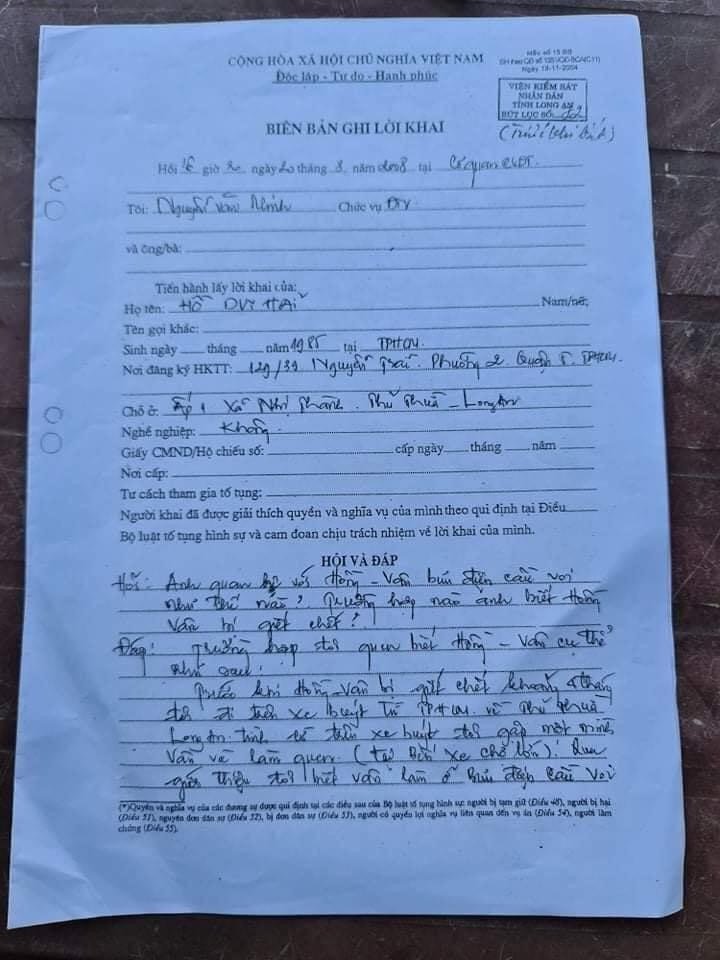 CỘNG HÒA XÃ HỘI CHỦ NGHĨA VIỆT NAM
Độc lập - Tự do - Hạnh phúc
Mẫu số 15 BB
BH theo QĐ số
Ngày 18-11-2004
VIỆN KIỂM SÁT
NHÂN DÂN
TỈNH LONG AN
BÚT LỤC SỐ:
BIÊN BẢN GHI LỜI KHAI
Hồi 16 giờ 30 ngày 20 tháng 3 năm 2008 tại Cơ quan CSĐT.
Tôi: Nguyễn Văn Minh Chức vụ ĐTV
và ông/bà:
Tiến hành lấy lời khai của:
Họ tên: HỒ DUY HẢI Nam/nữ;
Tên gọi khác:
Sinh ngày tháng năm 1985 tại TPHCM.
Nơi đăng ký HKTT: 129/39 Nguyễn Trãi. Phường 2. Quận 5. TPHCM.
Chỗ ở: Ấp 1 Xã Nhị Thành. Thủ Thừa - Long An
Nghề nghiệp: Không.
Giấy CMND/Hộ chiếu số: cấp ngày tháng năm
Nơi cấp:
Tư cách tham gia tố tụng:
Người khai đã được giải thích quyền và nghĩa vụ của mình theo qui định tại Điều
Bộ luật tố tụng hình sự và cam đoan chịu trách nhiệm về lời khai của mình.
HỎI VÀ ĐÁP
Hỏi: Anh quan hệ với Hồng - Vân bưu điện cầu voi
như thế nào? Trường hợp nào anh biết Hồng
Vân bị giết chết?
Đáp: Trường hợp tôi quen biết Hồng - Vân cụ thể
như sau:
Trước khi Hồng - Vân bị giết chết khoảng tháng
tôi đi trên xe buýt từ TPHCM. về Thủ Thừa
Long An. trên xe buýt tôi gặp một mình
Vân và làm quen. (tại bến xe chợ lớn). Qua
giới thiệu tôi biết Vân làm ở bưu điện cầu voi
(*)Quyền và nghĩa vụ của các đương sự được qui định tại các điều sau của Bộ luật tố tụng hình sự: người bị tạm giữ (Điều 48), người bị hại
(Điều 51), nguyên đơn dân sự (Điều 52), bị đơn dân sự (Điều 53), người có quyền lợi nghĩa vụ liên quan đến vụ án (Điều 54), người làm
chứng (Điều 55).